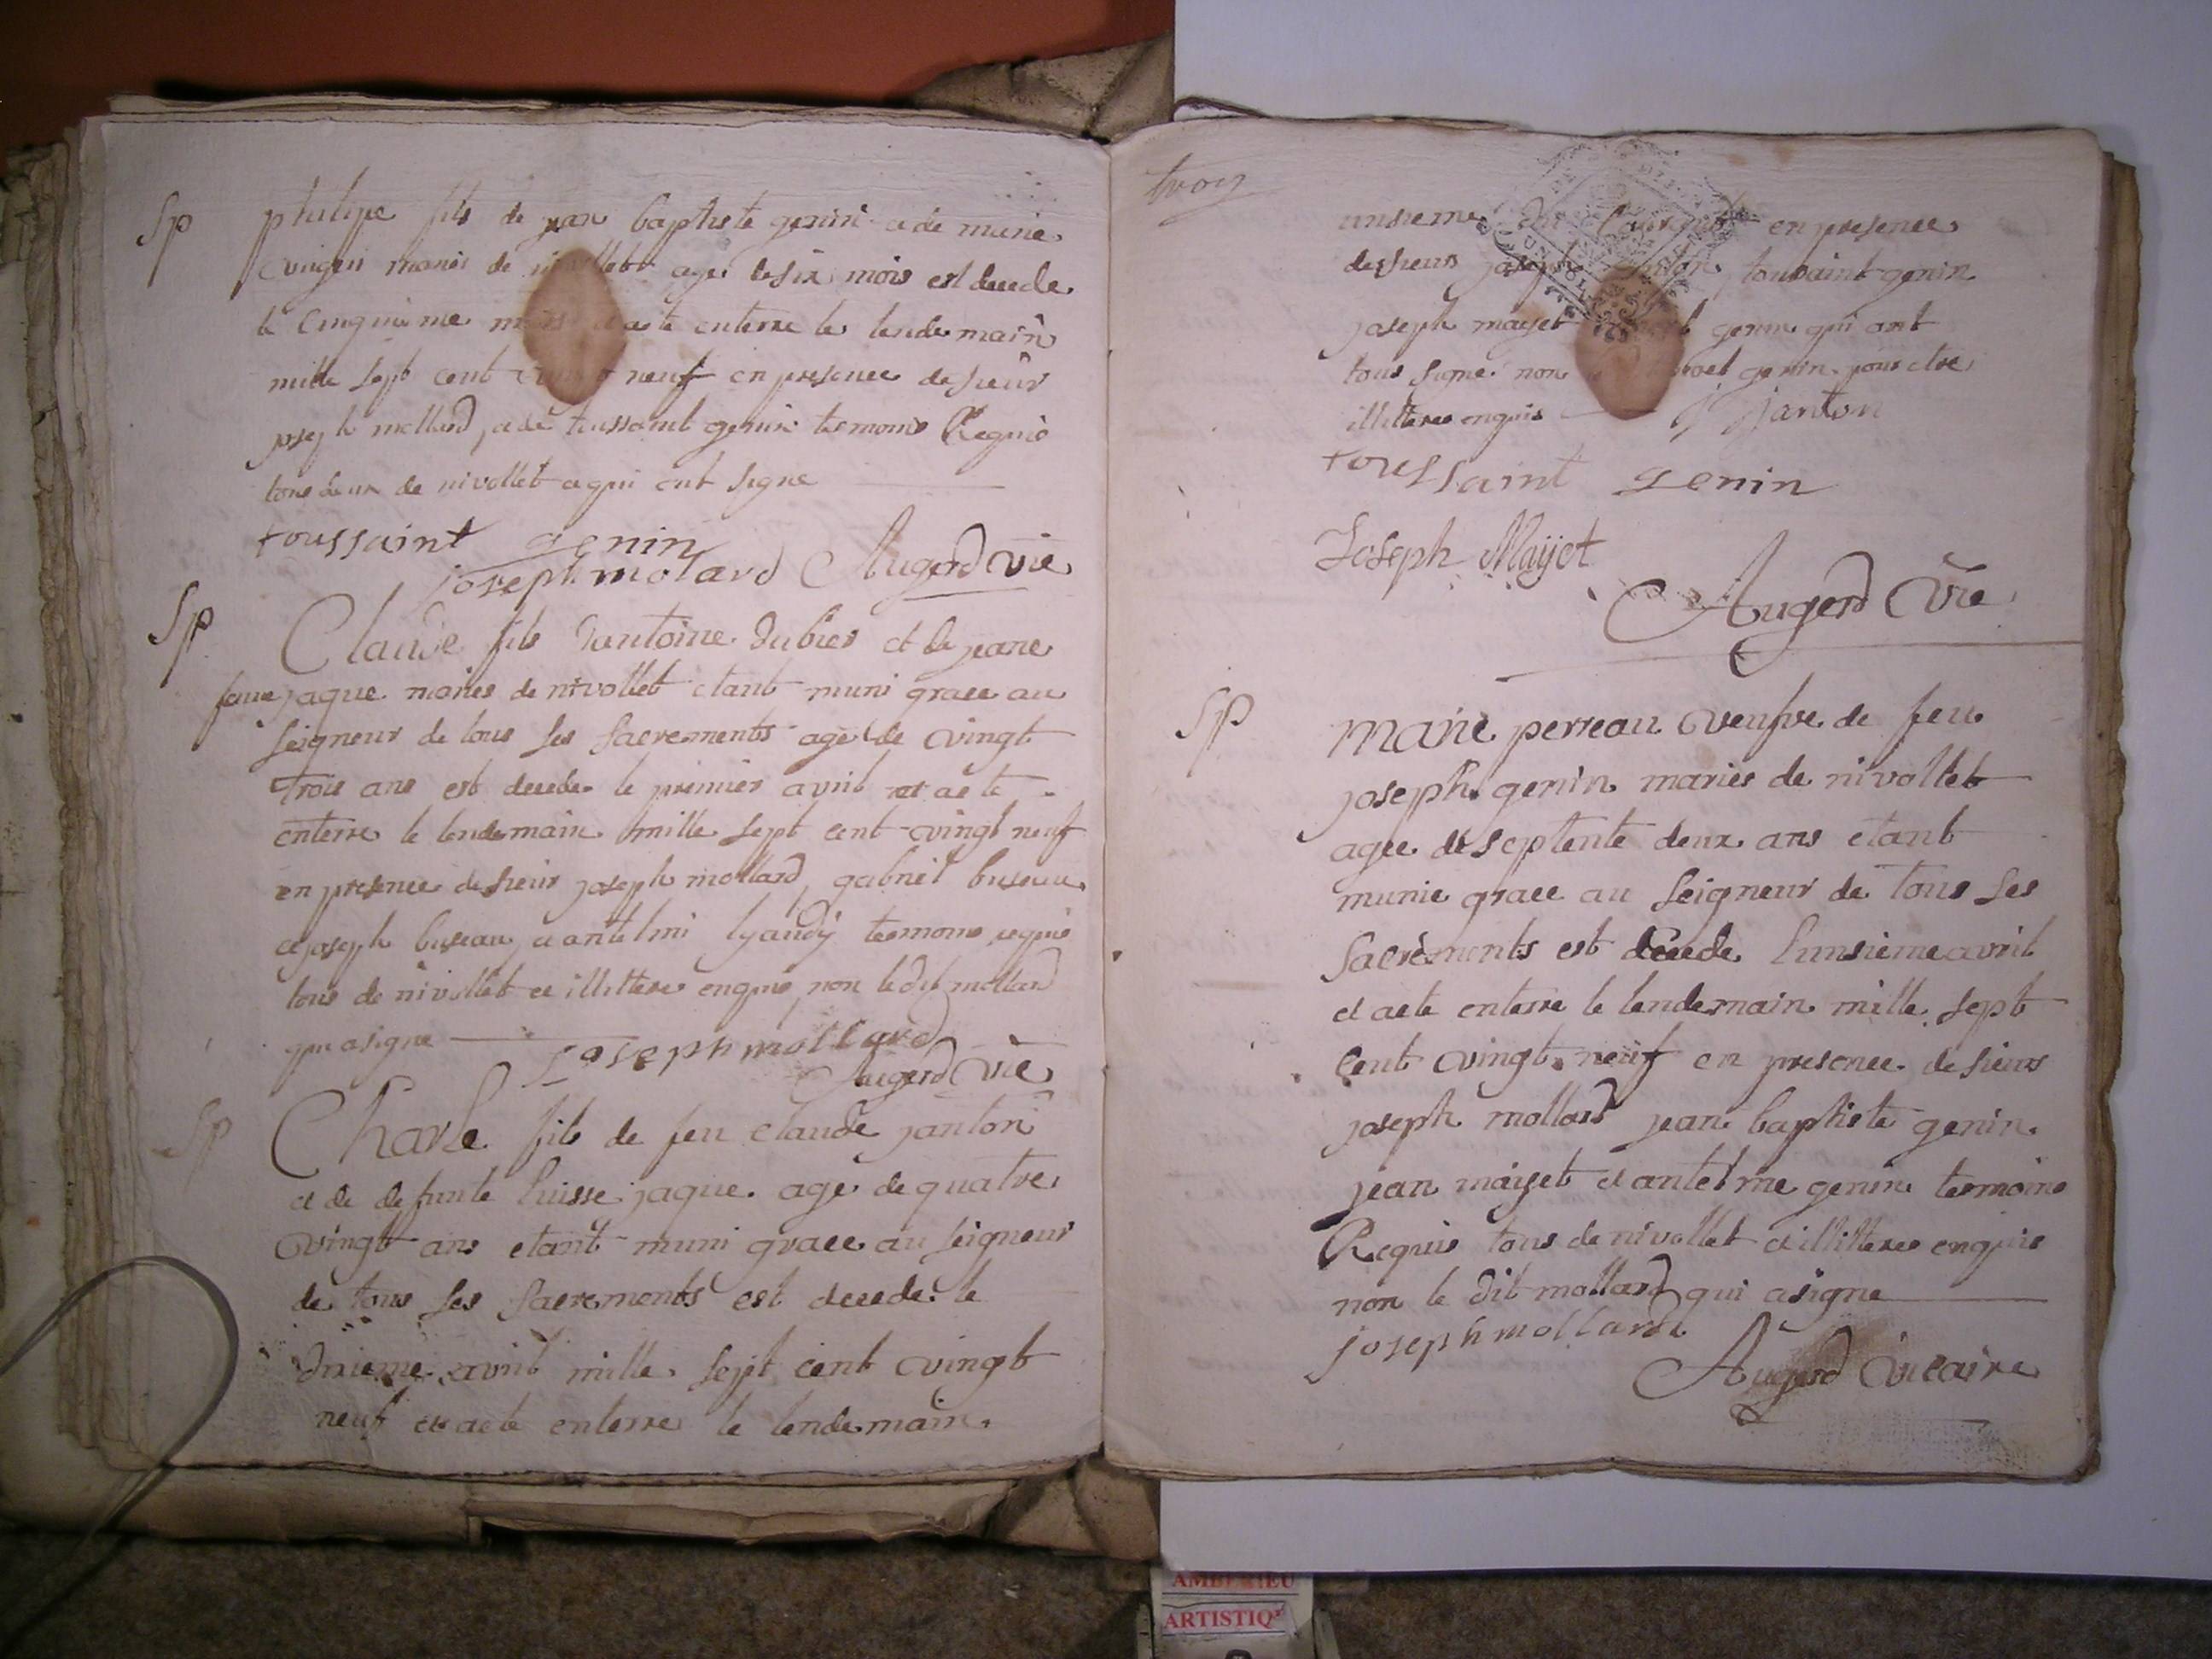 Sp
philipe fils de jean baptiste genin et de marie
mariés de nivollet agé de six mois est decede
le cinquieme mars et a ete enterre le lendemain
mille sept cent vingt neuf en presence de sieur
joseph mollard, et de toussaint genin temoins Requis
tous deux de nivollet et qui ont signe
toussaint genin
joseph molard Augerd vic
Sp
Claude fils dantoine dubier et de jeane
jaque mariés de nivollet etant muni grace au
seigneur de tous ses sacrements agé de vingt
trois ans est decede le premier avril et a ete
enterre le lendemain mille sept cent vingt neuf
en presence de sieur joseph mollard, gabriel buseau
et joseph buseau, et antelme temoins requis
tous de nivollet et illitteres enquis, non le dit mollard
qui a signe
Joseph mollard
Augerd vic
Sp
Charle fils de feu claude janton
et de defunte luisse jaque agé de quatre
vingt ans etant muni grace au seigneur
de tous ses sacrements est decede le
dixieme avril mille sept cent vingt
neuf et a ete enterre le lendemain
trois
unsieme du courant en presence
de sieurs joseph janton, toussaint genin
joseph mayet genin qui ont
tous signe non genin pour etre
illitteres enquis J Janton
toussaint genin
Joseph Mayet
Augerd Vic
Sp
Marie perreau veufve de feu
joseph genin mariés de nivollet
agee de septente deux ans etant
munie grace au seigneur de tous ses
sacrements est decede lunsieme avril
et a ete enterre le lendemain mille sept
cent vingt neuf en presence de sieurs
joseph mollard jean baptiste genin
jean mayet et antelme genin temoins
Requis tous de nivollet et illitteres enquis
non le dit mollard qui a signe
joseph mollard
Augerd vicaire
AMBERIEU
ARTISTIQ